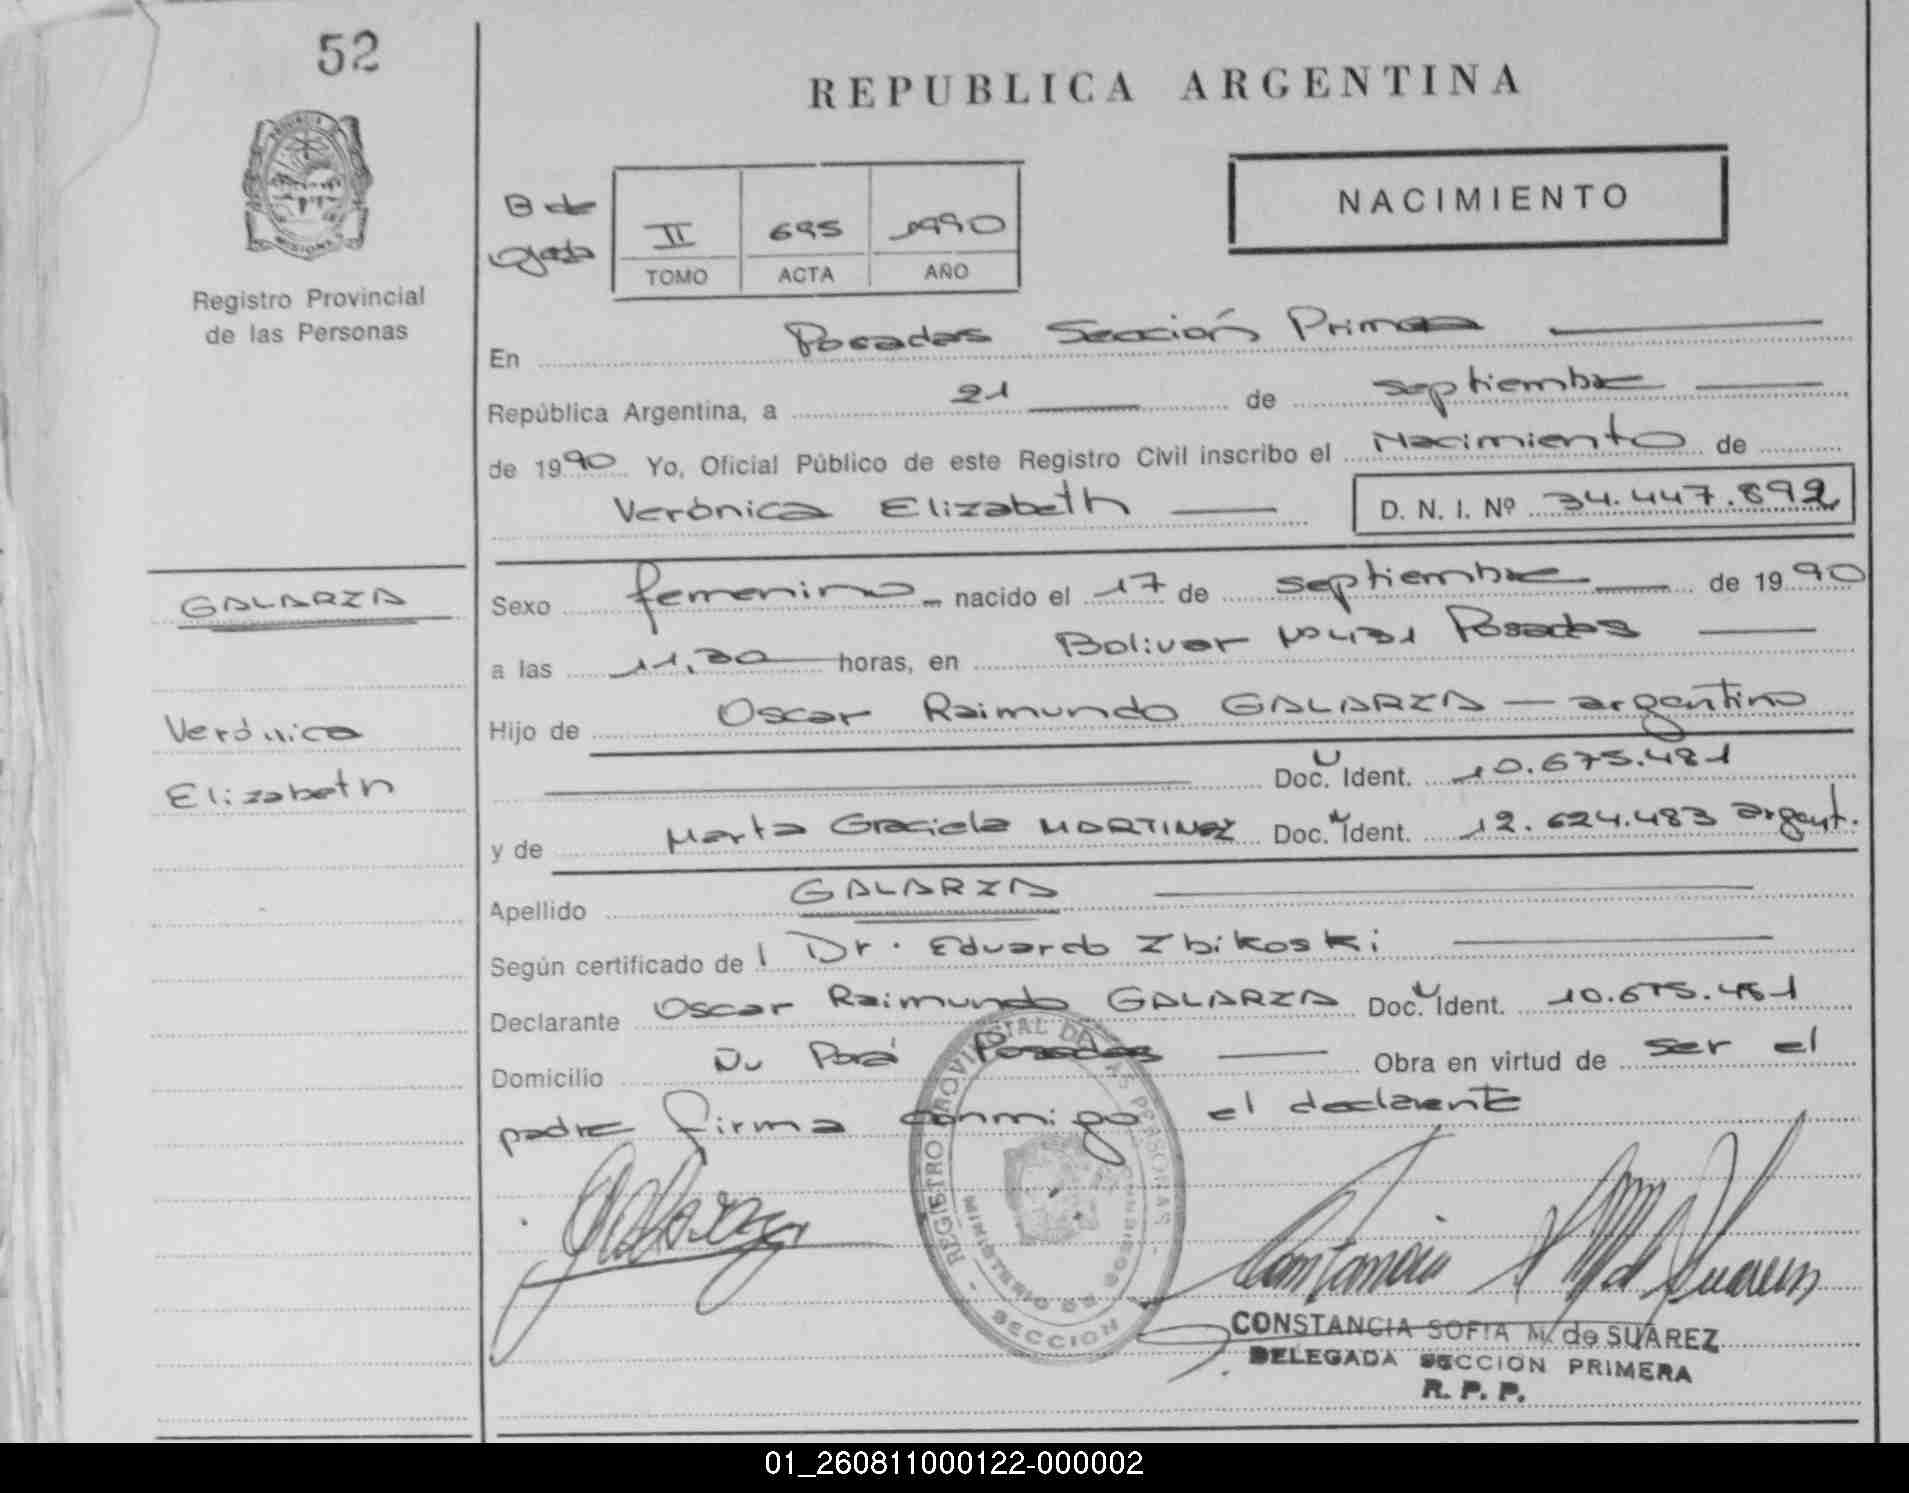 52
REPUBLICA ARGENTINA
NACIMIENTO
B de
II 695 1990
TOMO ACTA AÑO
Registro Provincial
de las Personas
En Posadas Sección Primera
República Argentina, a 21 de septiembre
de 1990 Yo, Oficial Público de este Registro Civil inscribo el Nacimiento de
Verónica Elizabeth D. N. I. Nº 34.447.892
GALARZA
Sexo femenino nacido el 17 de septiembre de 1990
a las 11,30 horas, en Bolivar Nº 431 Posadas
Verónica
Hijo de Oscar Raimundo GALARZA — argentino
Elizabeth
Doc. Ident. 10.675.481
y de Marta Graciela MARTINEZ Doc. Ident. 12.624.483 argent.
Apellido GALARZA
Según certificado de Dr. Eduardo Zbikoski
Declarante Oscar Raimundo GALARZA Doc. Ident. 10.675.481
Domicilio Ñu Porá Posadas Obra en virtud de ser el
padre firma conmigo el declarante
REGISTRO PROVINCIAL DE LAS PERSONAS
MINISTERIO DE GOBIERNO
SECCION
Constancia S M de Suarez
CONSTANCIA SOFIA M. de SUAREZ
DELEGADA SECCION PRIMERA
R. P. P.
01_260811000122-000002